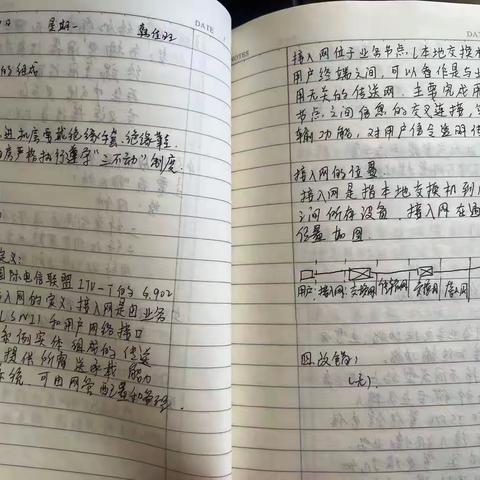 DATE
星期一
的组成
进机房需戴绝缘手套、绝缘鞋
房严格执行遵守“三不动”制度.
定义:
国际电信联盟ITU-T的G.902
入网的定义:接入网是由业务
(SNI)和用户网络接口
系列实体组成的传送
提供所需送承载能力
系统,可由网管配置和管理.
NOTES
DATE
接入网位于业务节点(本地交换
用户终端之间,可以看作是与业
用无关的传送网.主要完成用
节点之间信息的交叉连接,
输功能,对用户信令透明传
接入网的位置
接入网是指本地交换机到
之间所有设备.接入网在通
位置如图.
用户 接入网 交换网 传输网 交换网 接入网
四.故障:
(无).